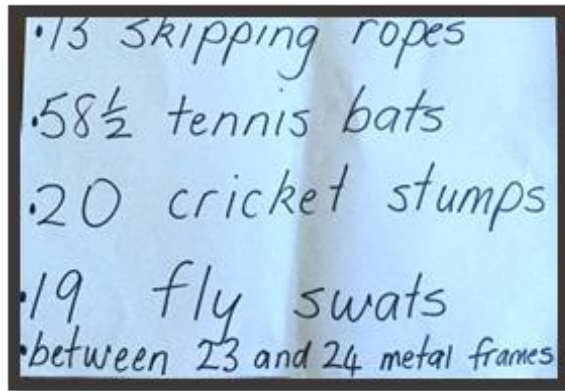 ·13 skipping ropes
·58½ tennis bats
·20 cricket stumps
·19 fly swats
·between 23 and 24 metal frames